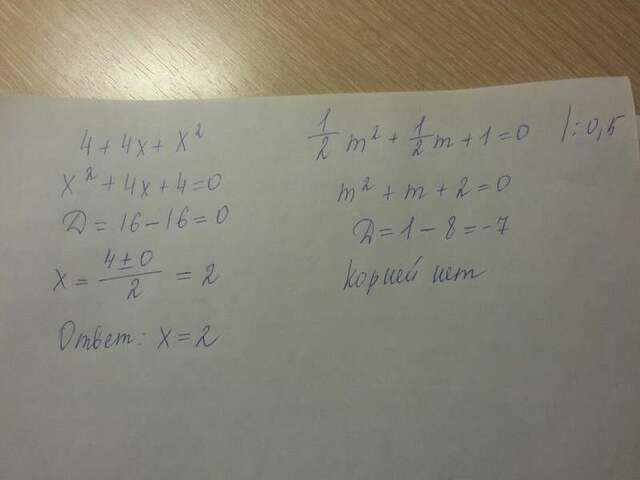 4 + 4x + x²
x² + 4x + 4 = 0
D = 16 − 16 = 0
x = (4 ± 0)/2 = 2
Ответ: x = 2
1/2 m² + 1/2 m + 1 = 0 |: 0,5
m² + m + 2 = 0
D = 1 − 8 = −7
Корней нет